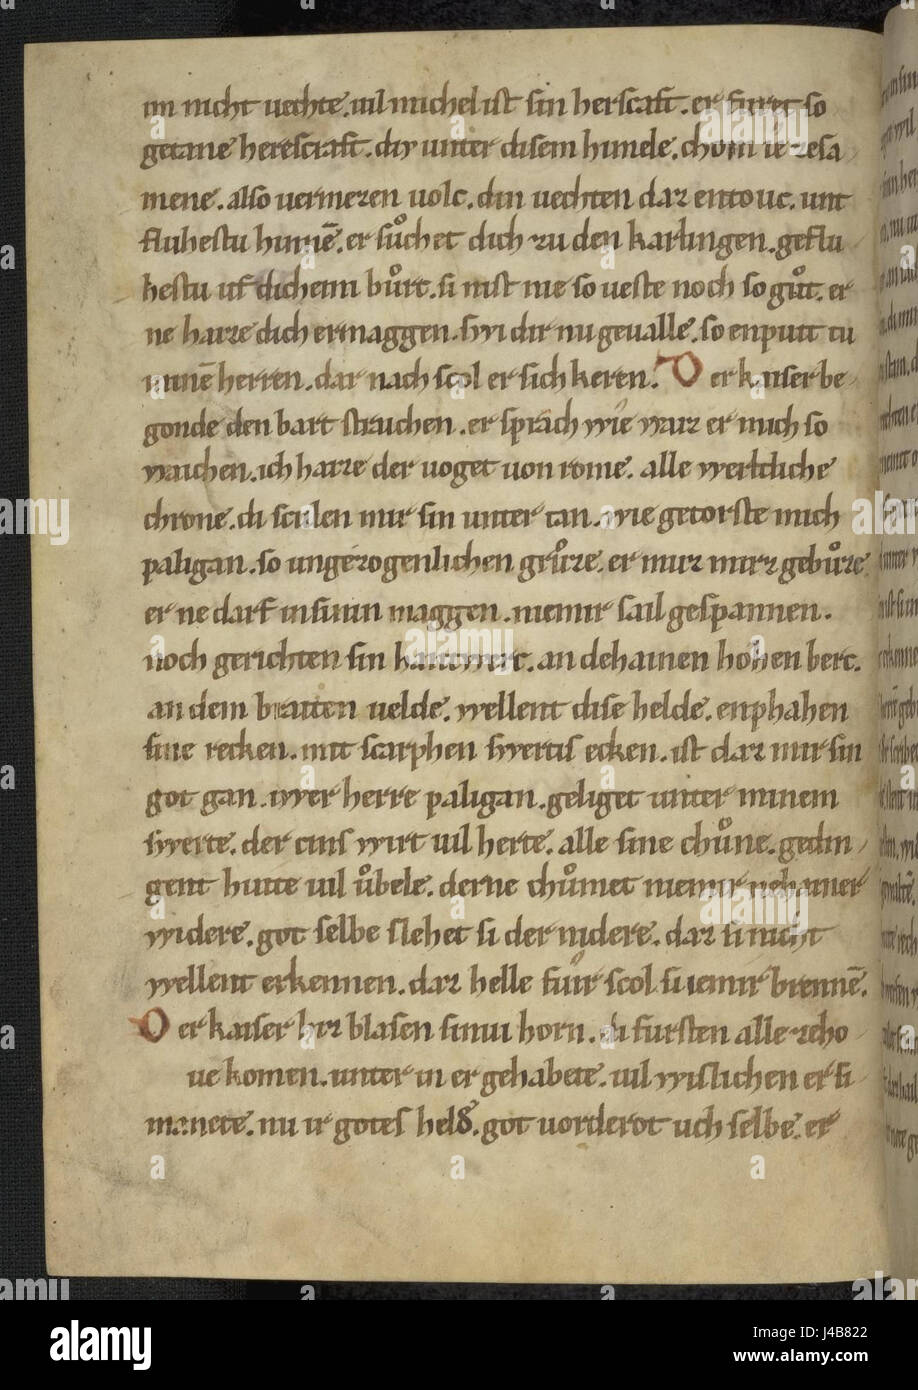 im nicht uechte. uil michel ist sin herscaft. er furet so
getane herescraft. diu unter disem himele. chom ie zesa
mene. also uermezen uolc. din uechten daz entouc. unt
fluhestu hinnē. er sůchet dich zu den karlingen. geflu
hestu uf dicheim bůrc. si nist nie so ueste noch so gůt. er
ne haize dich er maggen. swi dir nu geualle. so enputt tu
minē herren. dar nach scol er sich keren. Der kaiser be
gonde den bart struchen. er sprach wie waiz er mich so
waichen. ich haize der uoget uon rome. alle werltliche
chrone. di sculen mir sin unter tan. wie getorste mich
paligan. so ungezogenlichen grůze. er muz mirz gebůze.
er ne darf in sinin maggen. niemir sail gespannen.
noch gerichten sin hantwerc. an dehainen hohen berc.
an dem braiten uelde. wellent dise helde. enphahen
sine recken. mit scarphen swertis ecken. ist daz mir sin
got gan. iwer herre paligan. geliget unter minem
swerte. der cins wirt uil herte. alle sine chůne. gedin
gent hiute uil ůbele. derne chůmet niemir nehainer
widere. got selbe slehet si der nidere. daz si nicht
wellent erkennen. daz helle fůir scol si iemir brennē.
Der kaiser hiz blasen sinui horn. di fursten alle zeho
ue komen. unter in er gehabete. uil wislichen er si
manete. nu ir gotes held. got uorderot uch selbe. er
alamy
Image ID: J4B822
www.alamy.com